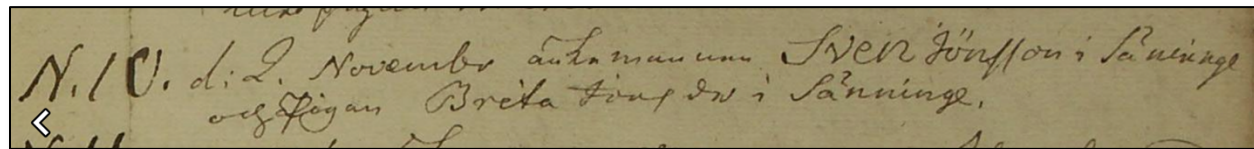 N.10. d: 2. November änkemannen Sven Jönsson i Sänninge
och Pigan Brita Jönsdr i Sänninge.